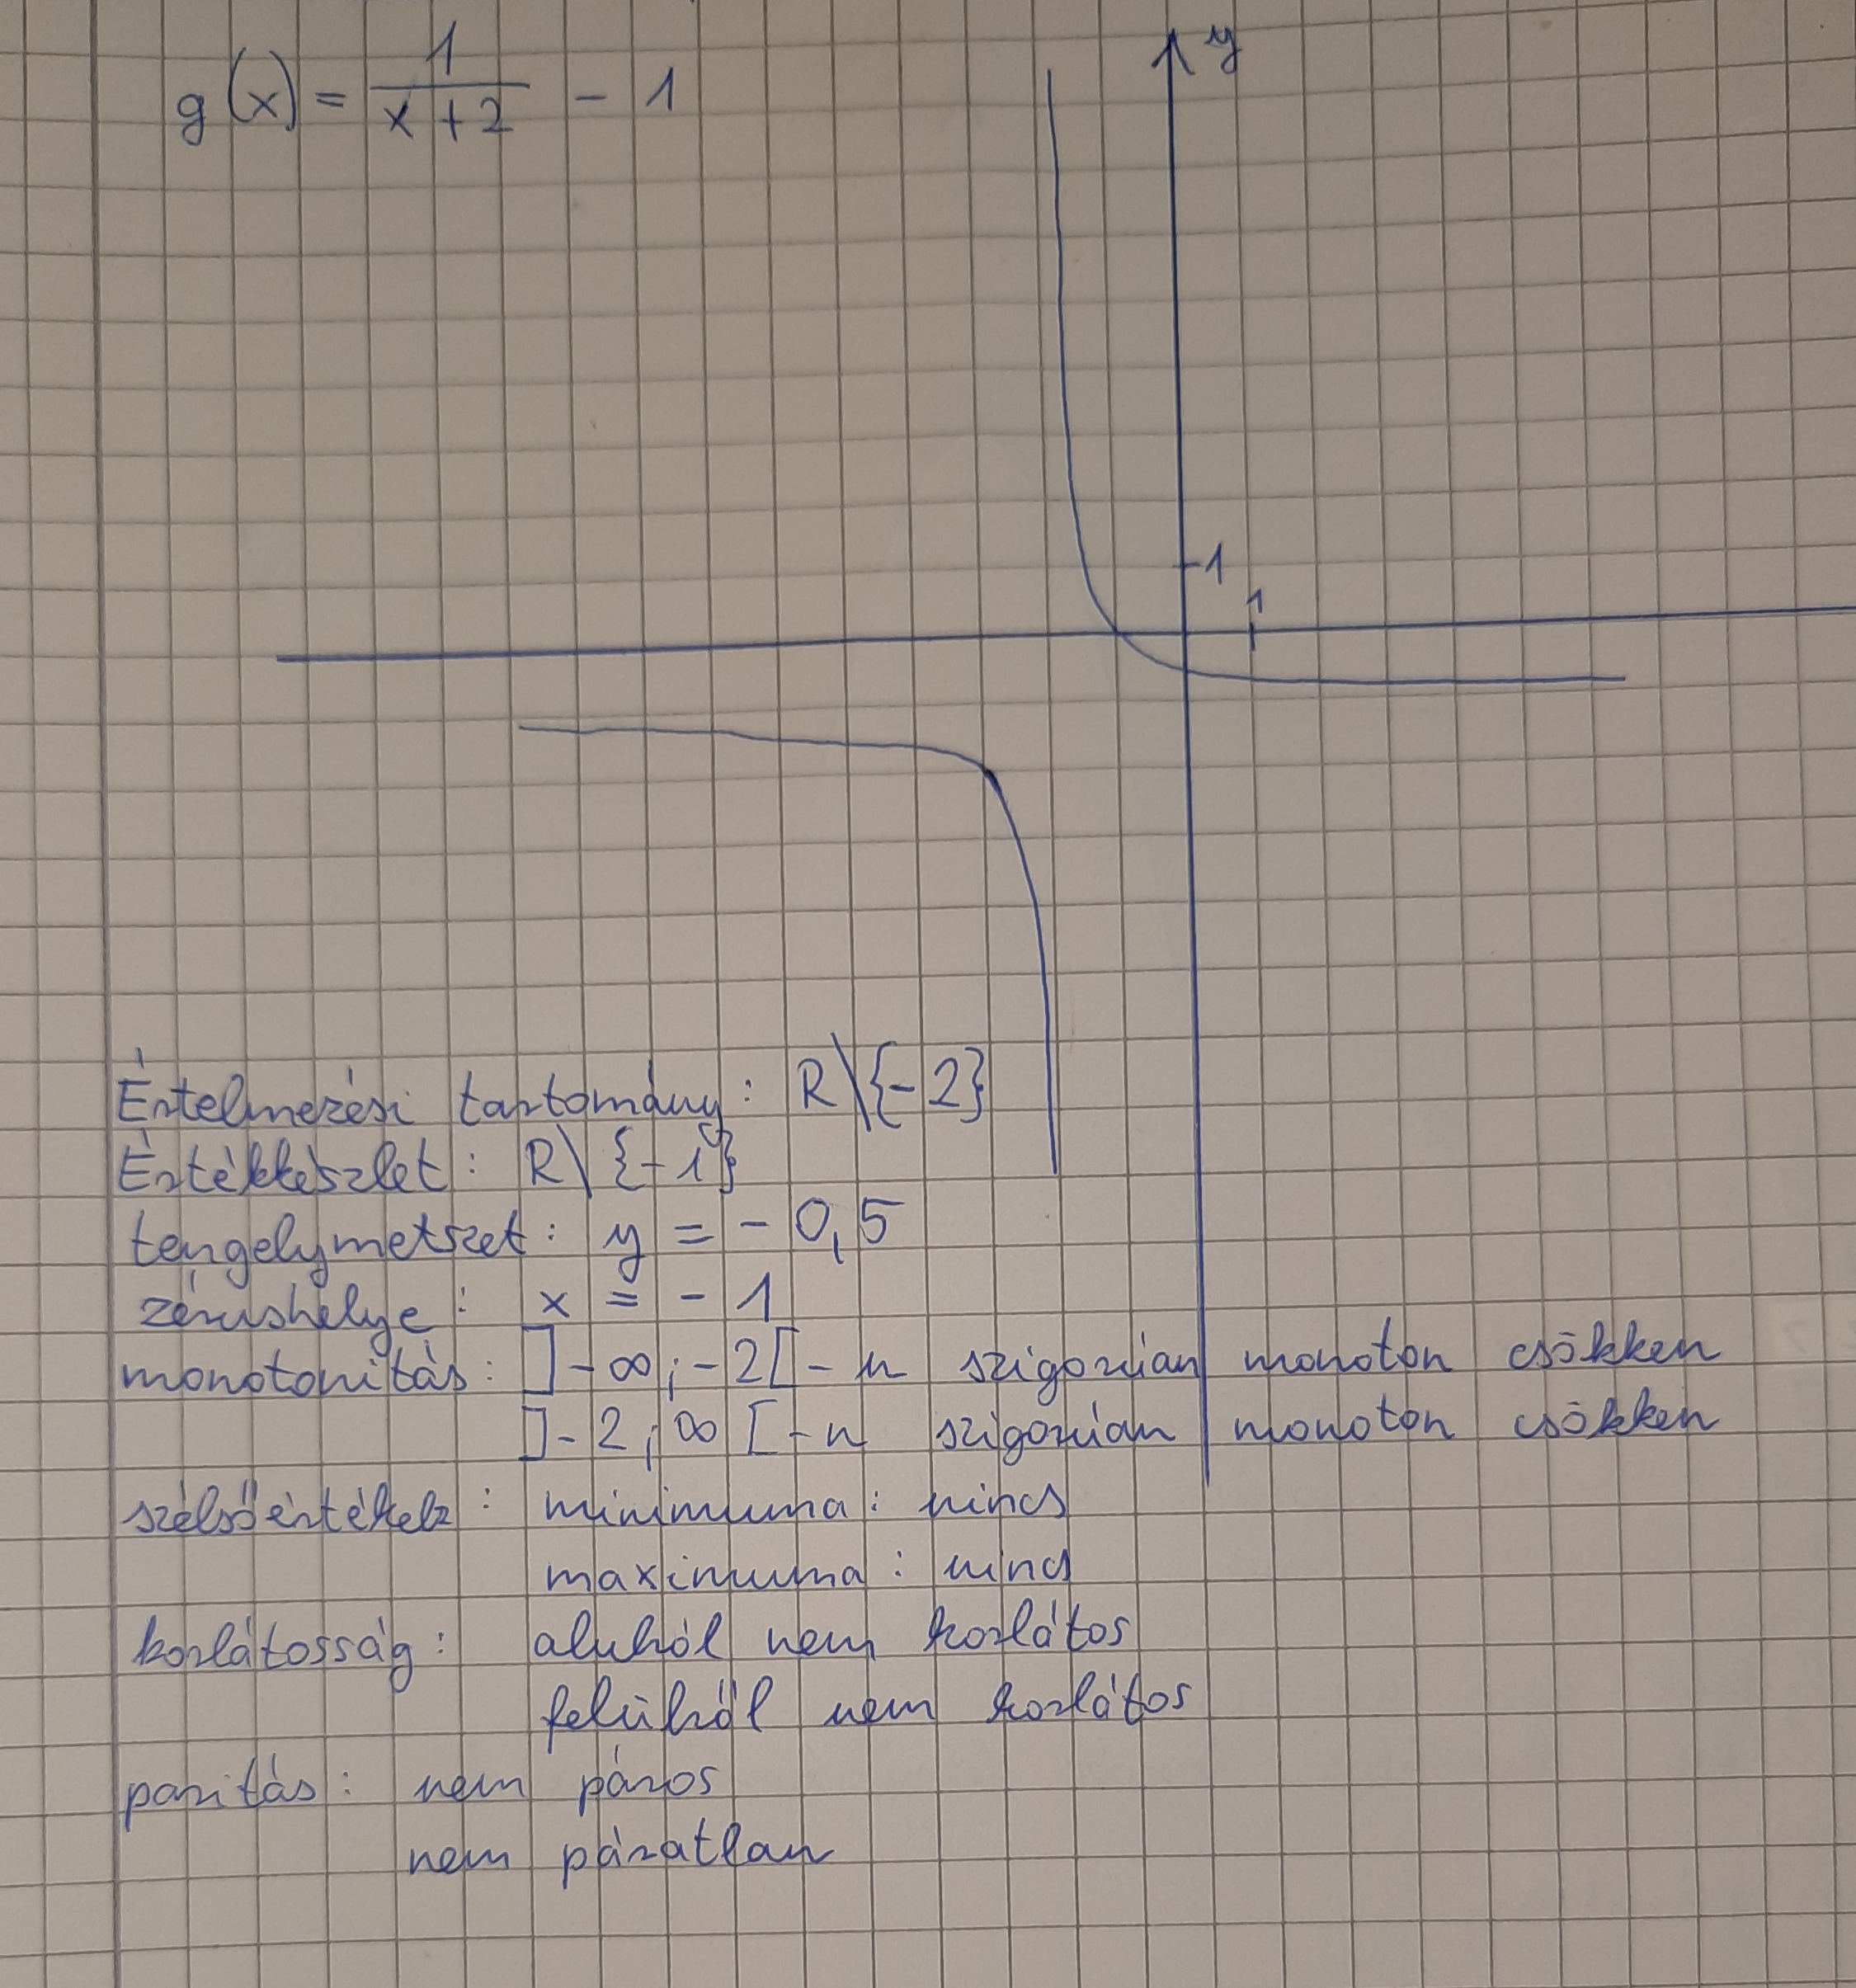 g(x) = 1/(x+2) - 1
y
1
1
Értelmezési tartomány: R\{-2}
Értékkészlet: R\{-1}
tengelymetszet: y = -0,5
zérushelye: x = -1
monotonitás: ]-∞;-2[-n szigorúan monoton csökken
]-2;∞[-n szigorúan monoton csökken
szélsőértékek: minimuma: nincs
maximuma: nincs
korlátosság: alulról nem korlátos
felülről nem korlátos
paritás: nem páros
nem páratlan